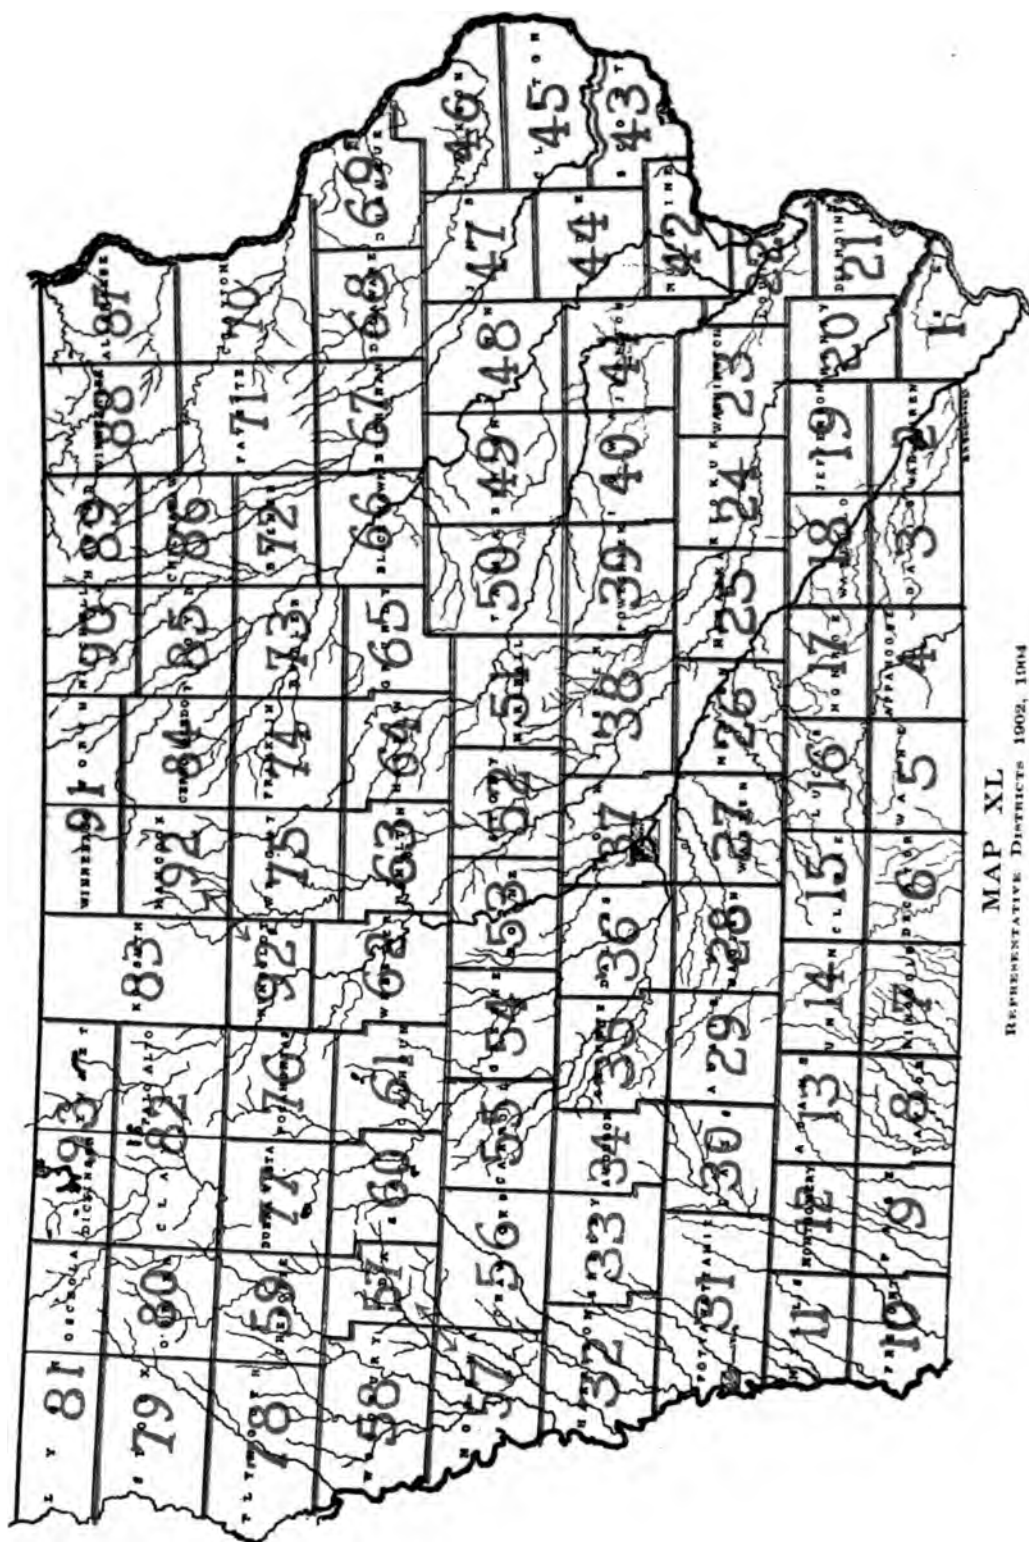 LYON 81 OSCEOLA
DICKINSON 93 EMMET
KOSSUTH 83
WINNEBAGO 91 WORTH
MITCHELL 90
HOWARD 89
WINNESHIEK 88
ALLAMAKEE 87
SIOUX 79
O'BRIEN 80
CLAY 82 PALO ALTO
HANCOCK 92
CERRO GORDO 84
FLOYD 85
CHICKASAW 86
PLYMOUTH 78
CHEROKEE 59
BUENA VISTA 77
POCAHONTAS 76
HUMBOLDT 92
WRIGHT 75
FRANKLIN 74
BUTLER 73
BREMER 72
FAYETTE 71
CLAYTON 70
WOODBURY 58
IDA 57
SAC 60
CALHOUN 61
WEBSTER 62
HAMILTON 63
HARDIN 64
GRUNDY 65
BLACKHAWK 66
BUCHANAN 67
DELAWARE 68
DUBUQUE 69
MONONA 57
CRAWFORD 56
CARROLL 55
GREENE 54
BOONE 53
STORY 52
MARSHALL 51
TAMA 50
BENTON 49
LINN 48
JONES 47
JACKSON 46
CLINTON 45
HARRISON 32
SHELBY 33
AUDUBON 34
GUTHRIE 35
DALLAS 36
POLK 37
JASPER 38
POWESHIEK 39
IOWA 40
JOHNSON 41
CEDAR 44
SCOTT 43
POTTAWATTAMIE 31
CASS 30
ADAIR 29
MADISON 28
WARREN 27
MARION 26
MAHASKA 25
KEOKUK 24
WASHINGTON 23
MUSCATINE 42
LOUISA 22
MILLS 11
MONTGOMERY 12
ADAMS 13
UNION 14
CLARKE 15
LUCAS 16
MONROE 17
WAPELLO 18
JEFFERSON 19
HENRY 20
DES MOINES 21
FREMONT 10
PAGE 9
TAYLOR 8
RINGGOLD 7
DECATUR 6
WAYNE 5
APPANOOSE 4
DAVIS 3
VAN BUREN 2
LEE 1
MAP XL
REPRESENTATIVE DISTRICTS 1902, 1904